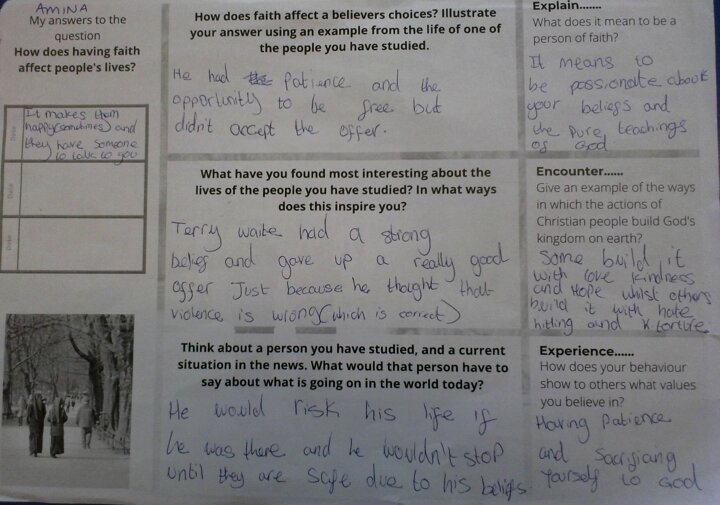 AMINA
My answers to the
question
How does having faith
affect people's lives?
Date
It makes them
happy(sometimes) and
they have someone
to talk to you
Date
Date
How does faith affect a believers choices? Illustrate
your answer using an example from the life of one of
the people you have studied.
He had Patience and the
opportunity to be free but
didn't accept the offer.
What have you found most interesting about the
lives of the people you have studied? In what ways
does this inspire you?
Terry waite had a strong
belief and gave up a really good
offer Just because he thought that
violence is wrong(which is correct)
Think about a person you have studied, and a current
situation in the news. What would that person have to
say about what is going on in the world today?
He would risk his life if
he was there and he wouldn't stop
until they are safe due to his beliefs
Explain.......
What does it mean to be a
person of faith?
It means to
be passionate about
your beliefs and
the Pure teachings
of God
Encounter......
Give an example of the ways
in which the actions of
Christian people build God's
kingdom on earth?
Some build it
with love kindness
and Hope whilst others
build it with hate
hitting and torture
Experience......
How does your behaviour
show to others what values
you believe in?
Having Patience
and Sacrificing
Yourself to God